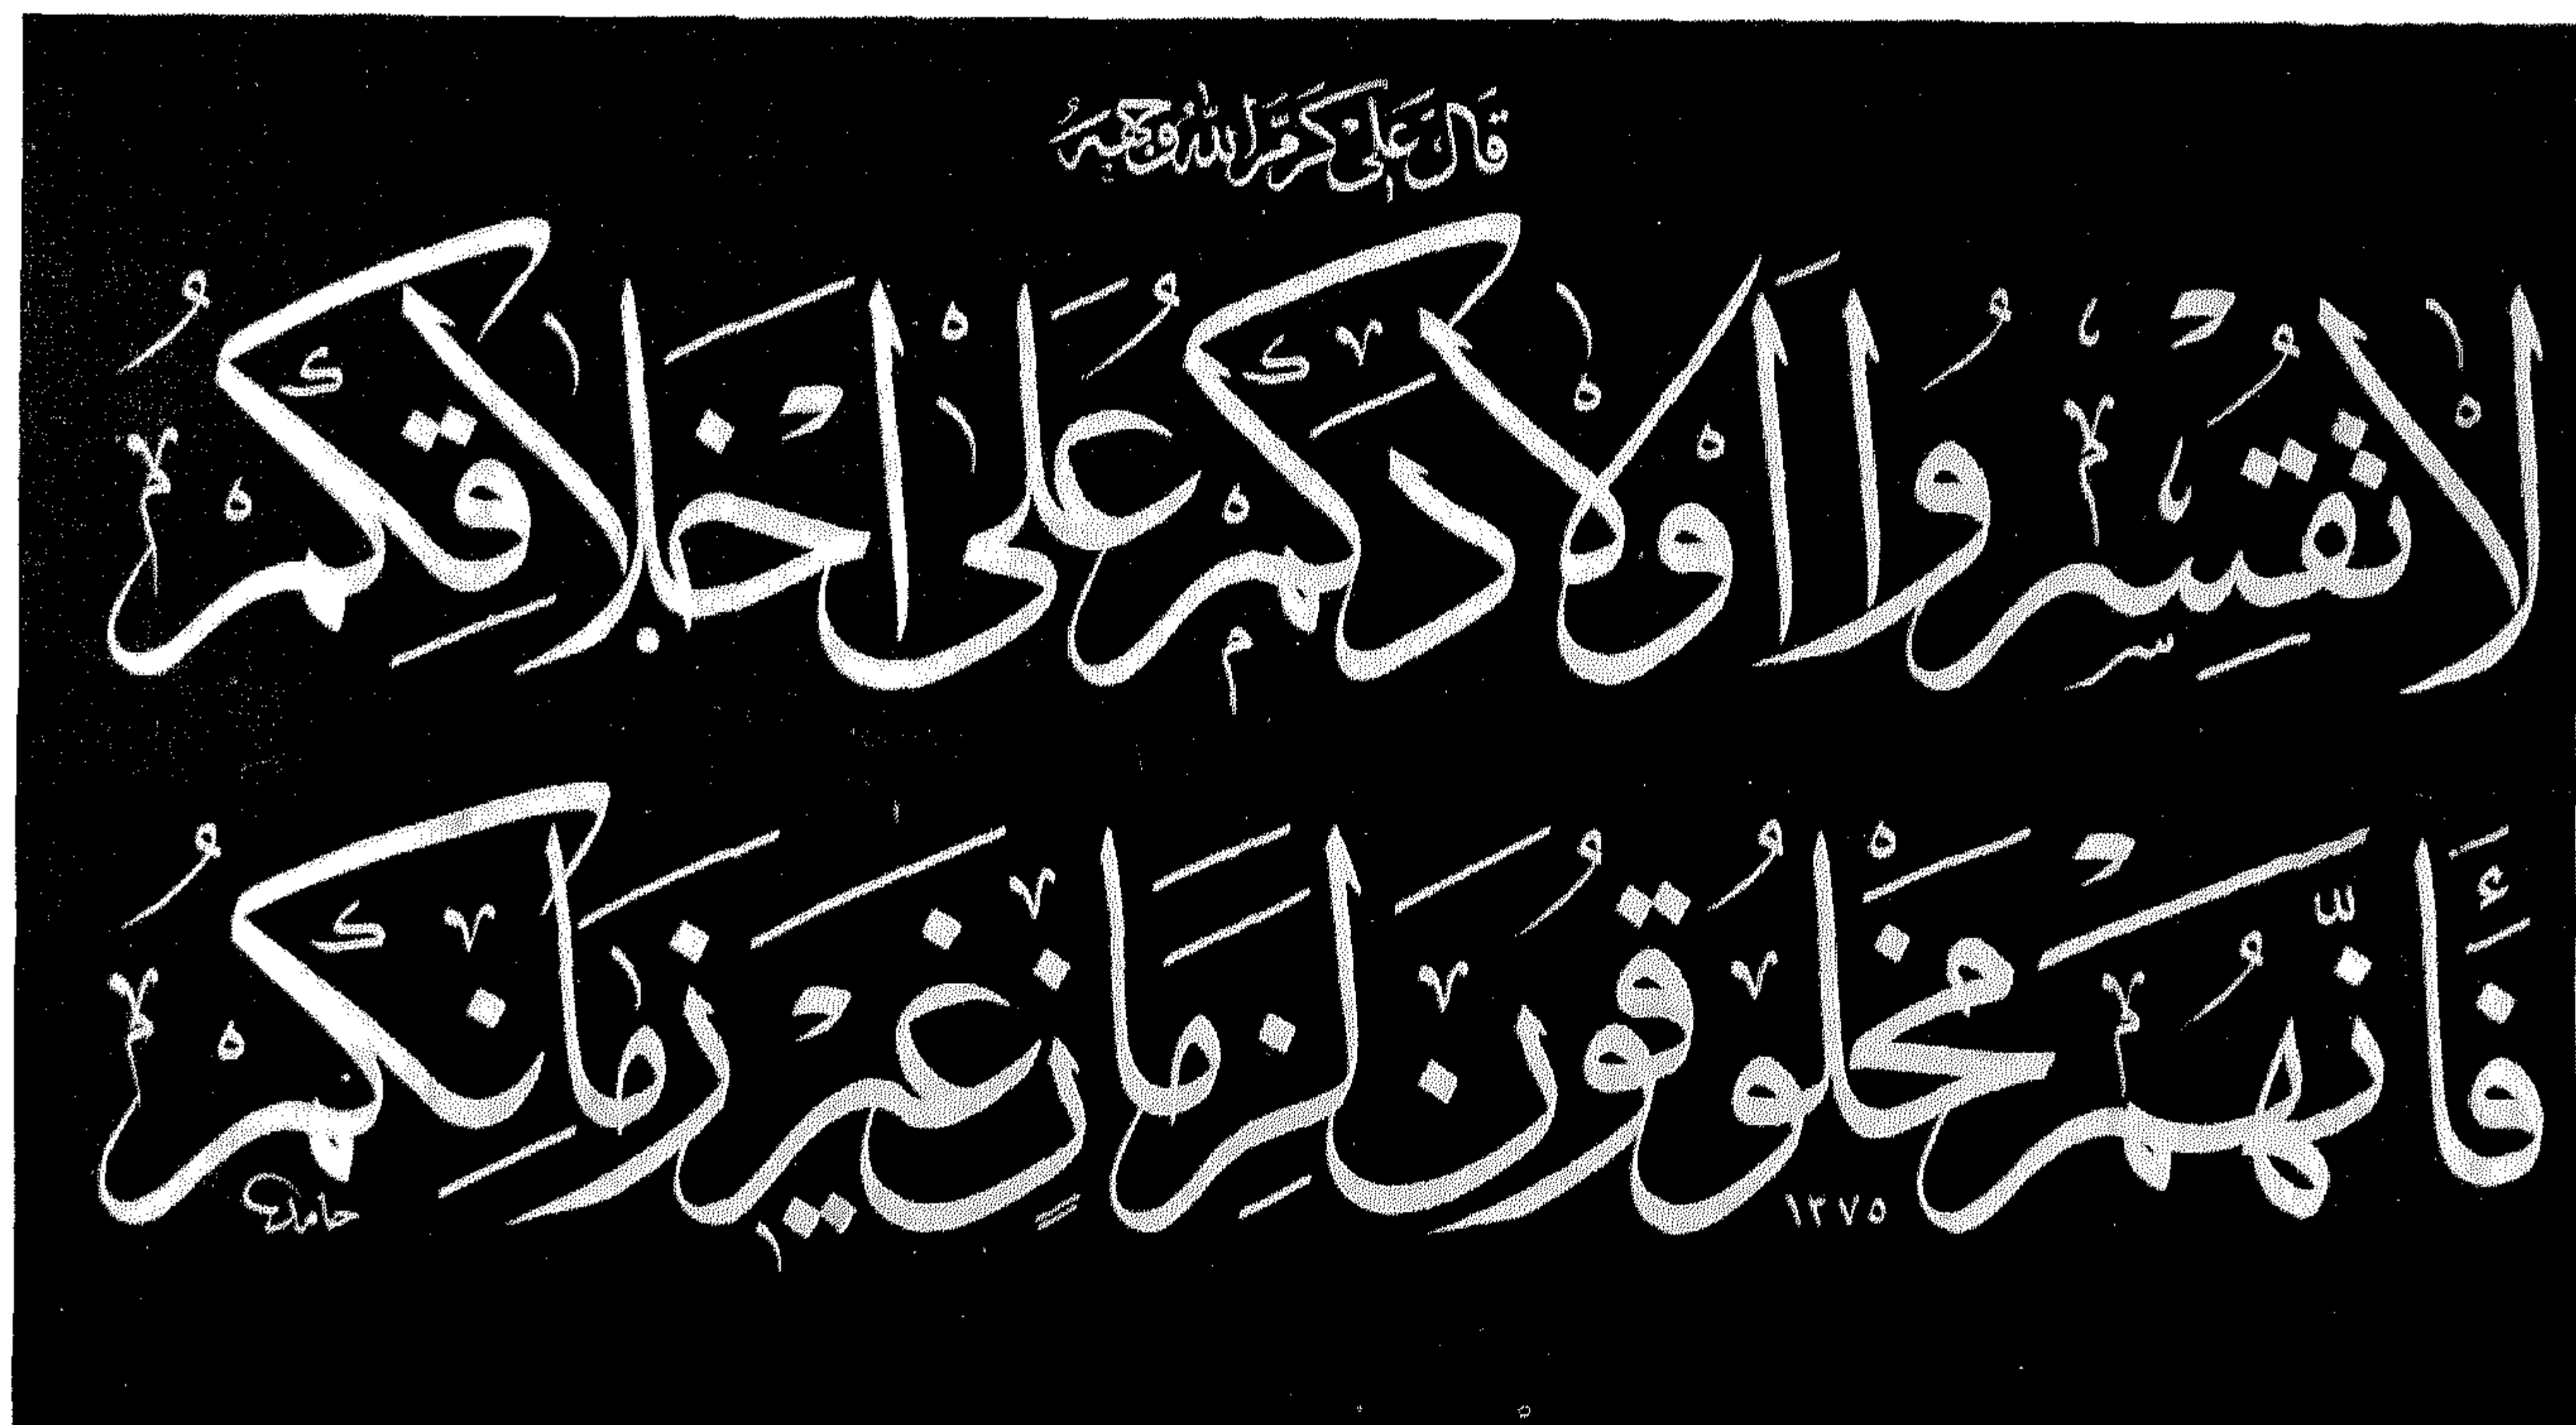 قَالَ عَلِي كَرَّمَ اللّٰهُ وَجْهَهُ
لَا تُقْسِرُوا اَوْلَادَكُمْ عَلٰى اَخْلَاقِكُمْ
فَأَنَّهُمْ مَخْلُوقُونَ لِزَمَانٍ غَيْرِ زَمَانِكُمْ
١٣٧٥
حامد